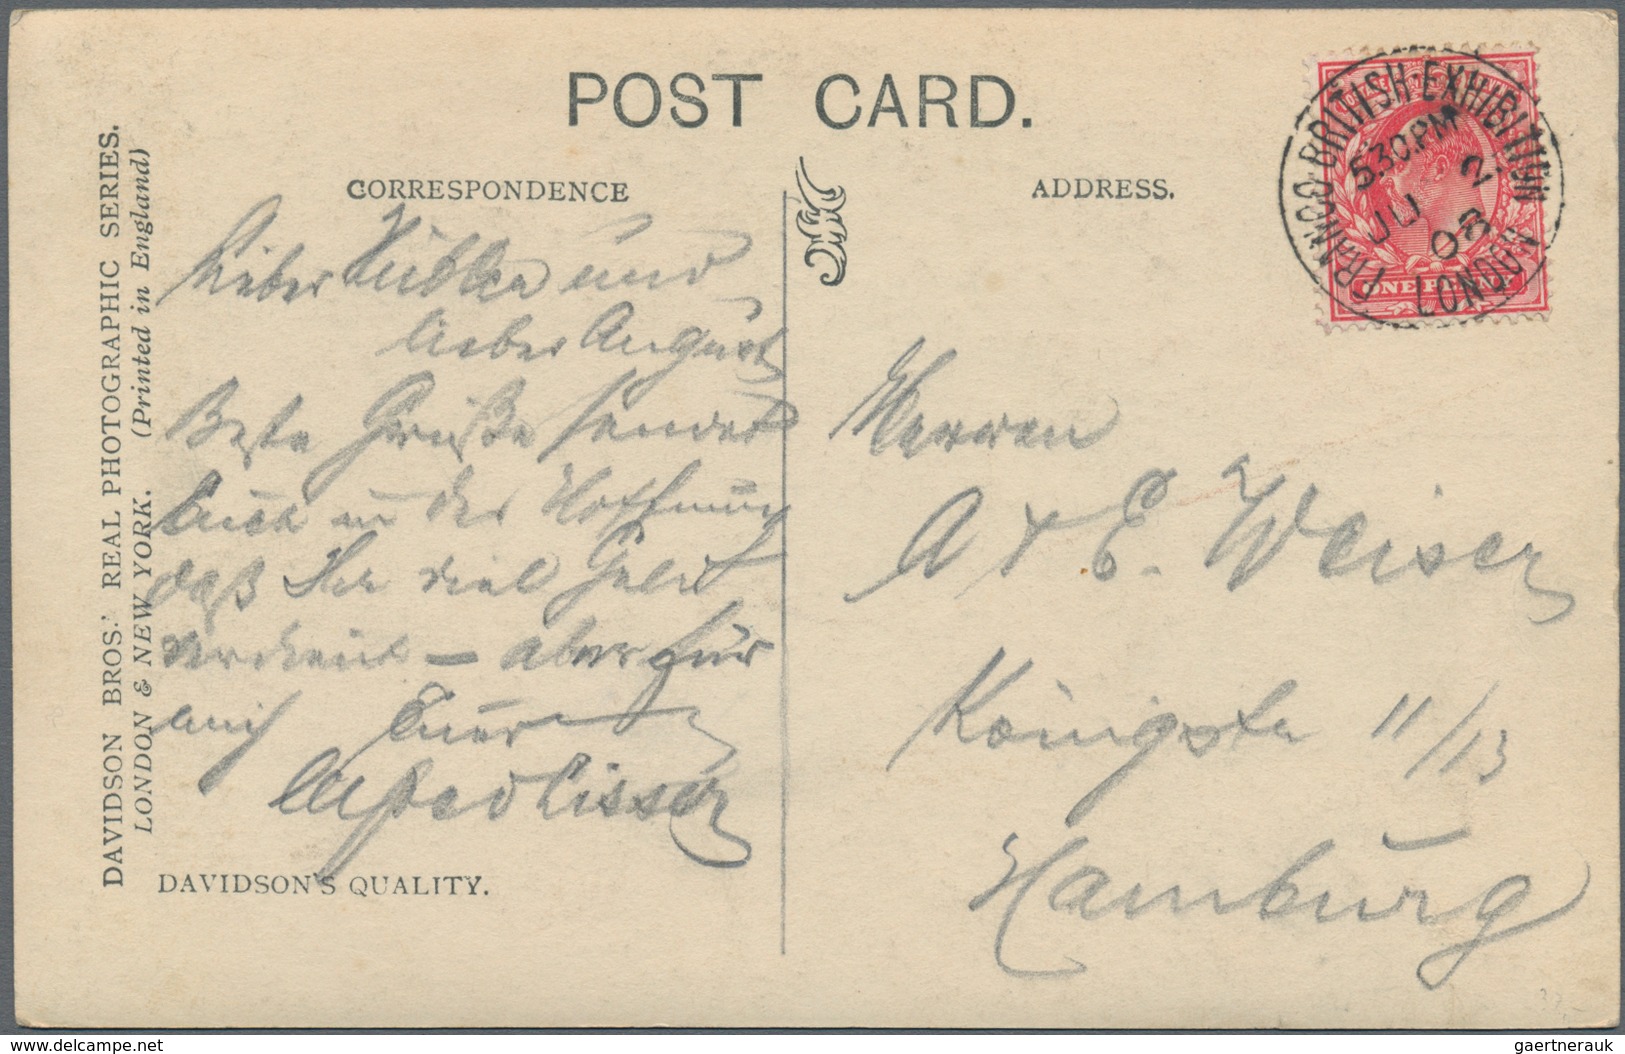 POST CARD.
CORRESPONDENCE
ADDRESS.
DAVIDSON BROS.' REAL PHOTOGRAPHIC SERIES.
LONDON & NEW YORK. (Printed in England)
FRANCO-BRITISH-EXHIBITION
5.30.PM
JU 2
08
LONDON
ONE
Lieber und
lieber August
Beste Grüße sendet
Euch in der Hoffnung
daß Ihr viel Geld
verdient — aber für
mich Euer
Alfred
Herren
A & E. Weiser
Königstr 11/13
Hamburg
DAVIDSON'S QUALITY.
www.delcampe.net
gaertnerauk